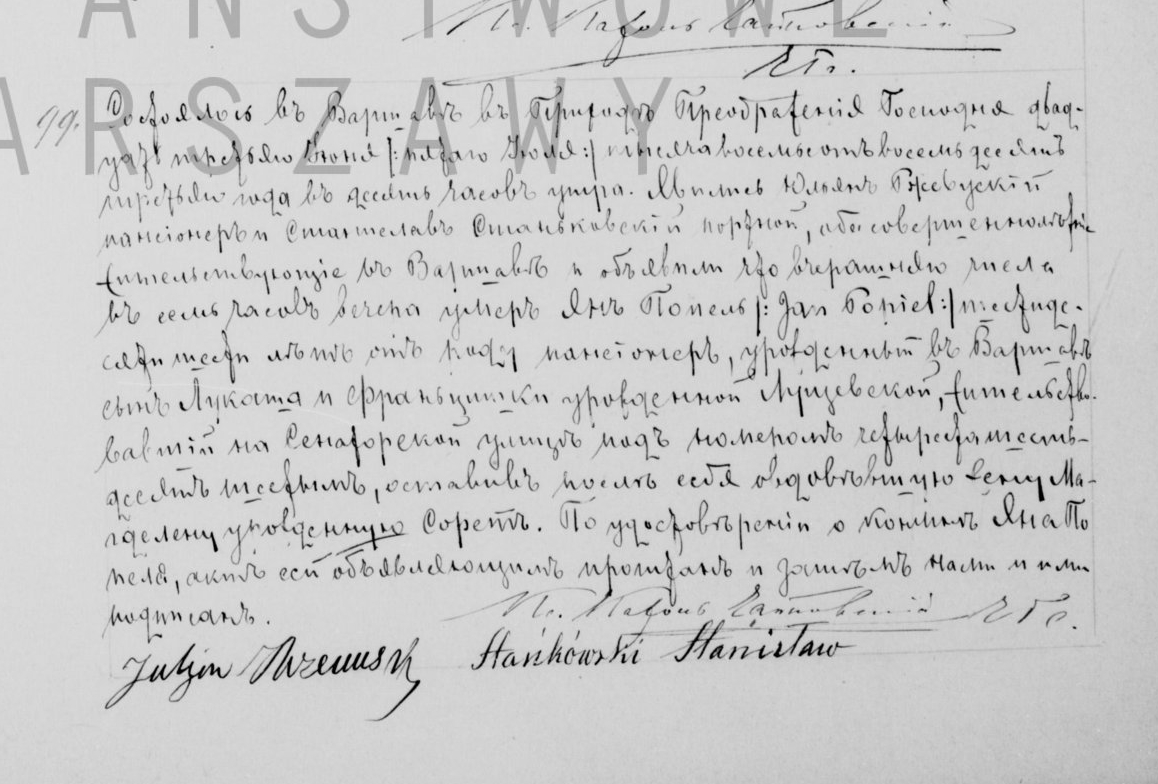 AŃSTWOWE
ARSZAWY
Кс.
99.
Состоялось въ Варшавѣ въ Приходѣ Преображенія Господня двад-
цать третьяго Іюня /: пятаго Іюля :/ тысяча восемьсотъ восемьдесятъ
третьяго года въ десять часовъ утра. Явились Юльянъ Ржевускій
пансіонеръ и Станиславъ Станьковскій портной, оба совершеннолѣтніе
жительствующіе въ Варшавѣ и объявили что вчерашняго числа
въ семь часовъ вечера умеръ Янъ Попель /: Jan Popiel :/ шестиде-
сяти шести лѣтъ отъ роду пансіонеръ, урожденный въ Варшавѣ
сынъ Лукаша и Францишки урожденной Лущевской, жительство-
вавшій на Сенаторской улицѣ подъ номеромъ четыреста шесть-
десятъ шестымъ, оставивъ послѣ себя овдовѣвшую жену Ма-
гделену урожденную Соретъ. По удостовѣреніи о кончинѣ Яна По
пеля, актъ сей объявляющимъ прочитанъ и затѣмъ нами и ими
подписанъ.
Кс.
Juljan Rzewuski Stańkówski Stanisław